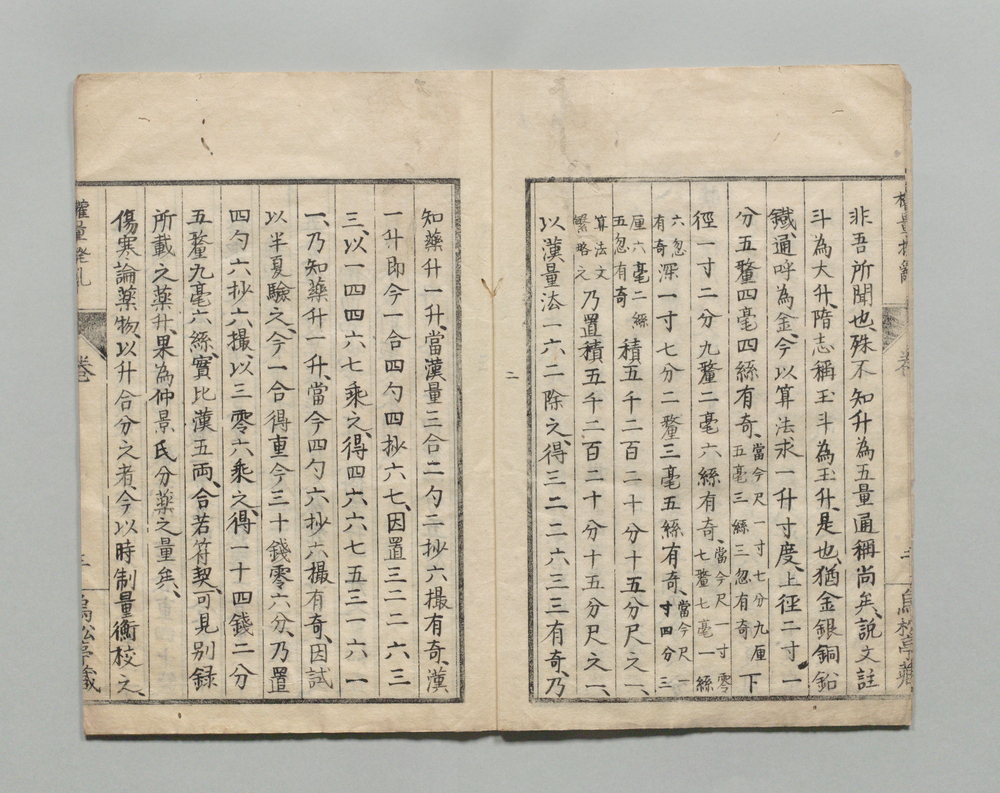 非吾所聞也、殊不知升為五量通稱尚矣、說文註
斗為大升、隋志稱玉斗為玉升、是也、猶金銀銅鉛
鐵、通呼為金、今以算法求一升寸度、上徑二寸一
分五釐四毫四絲有奇、當今尺一寸七分九厘五毫三絲三忽有奇下
徑一寸二分九釐二毫六絲有奇、當今尺一寸零七釐七毫一絲
六忽有奇深一寸七分二釐三毫五絲有奇、當今尺一寸四分三
厘六毫二絲五忽有奇積五千二百二十分十五分尺之一、
算法文繁略之乃置積五千二百二十分十五分尺之一、
以漢量法一六二除之、得三二二六三三有奇、乃
知藥升一升、當漢量三合二勺二抄六撮有奇、漢
一升即今一合四勺四抄六七、因置三二二六三
三、以一四四六七乘之、得四六六七五三一六一
一、乃知藥升一升、當今四勺六抄六撮有奇、因試
以半夏驗之、今一合得重今三十錢零六分、乃置
四勺六抄六撮、以三零六乘之、得一十四錢二分
五釐九毫六絲、實比漢五兩、合若符契、可見別錄
所載之藥升、果為仲景氏分藥之量矣、
傷寒論藥物以升合分之者、今以時制量衡校之、
卷
二
烏松亭藏